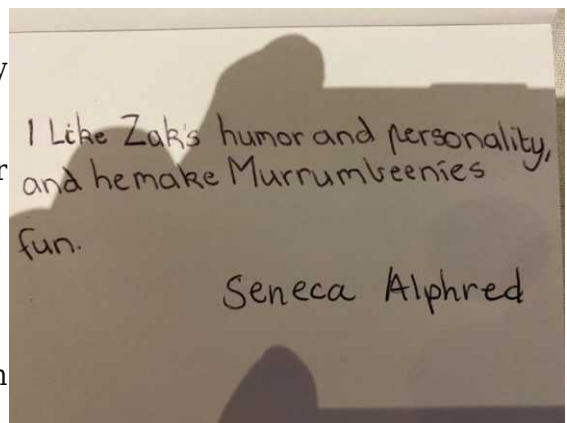 y
I Like Zak's humor and personality,
r
and hemake Murrumbeenies
fun.
Seneca Alphred
n